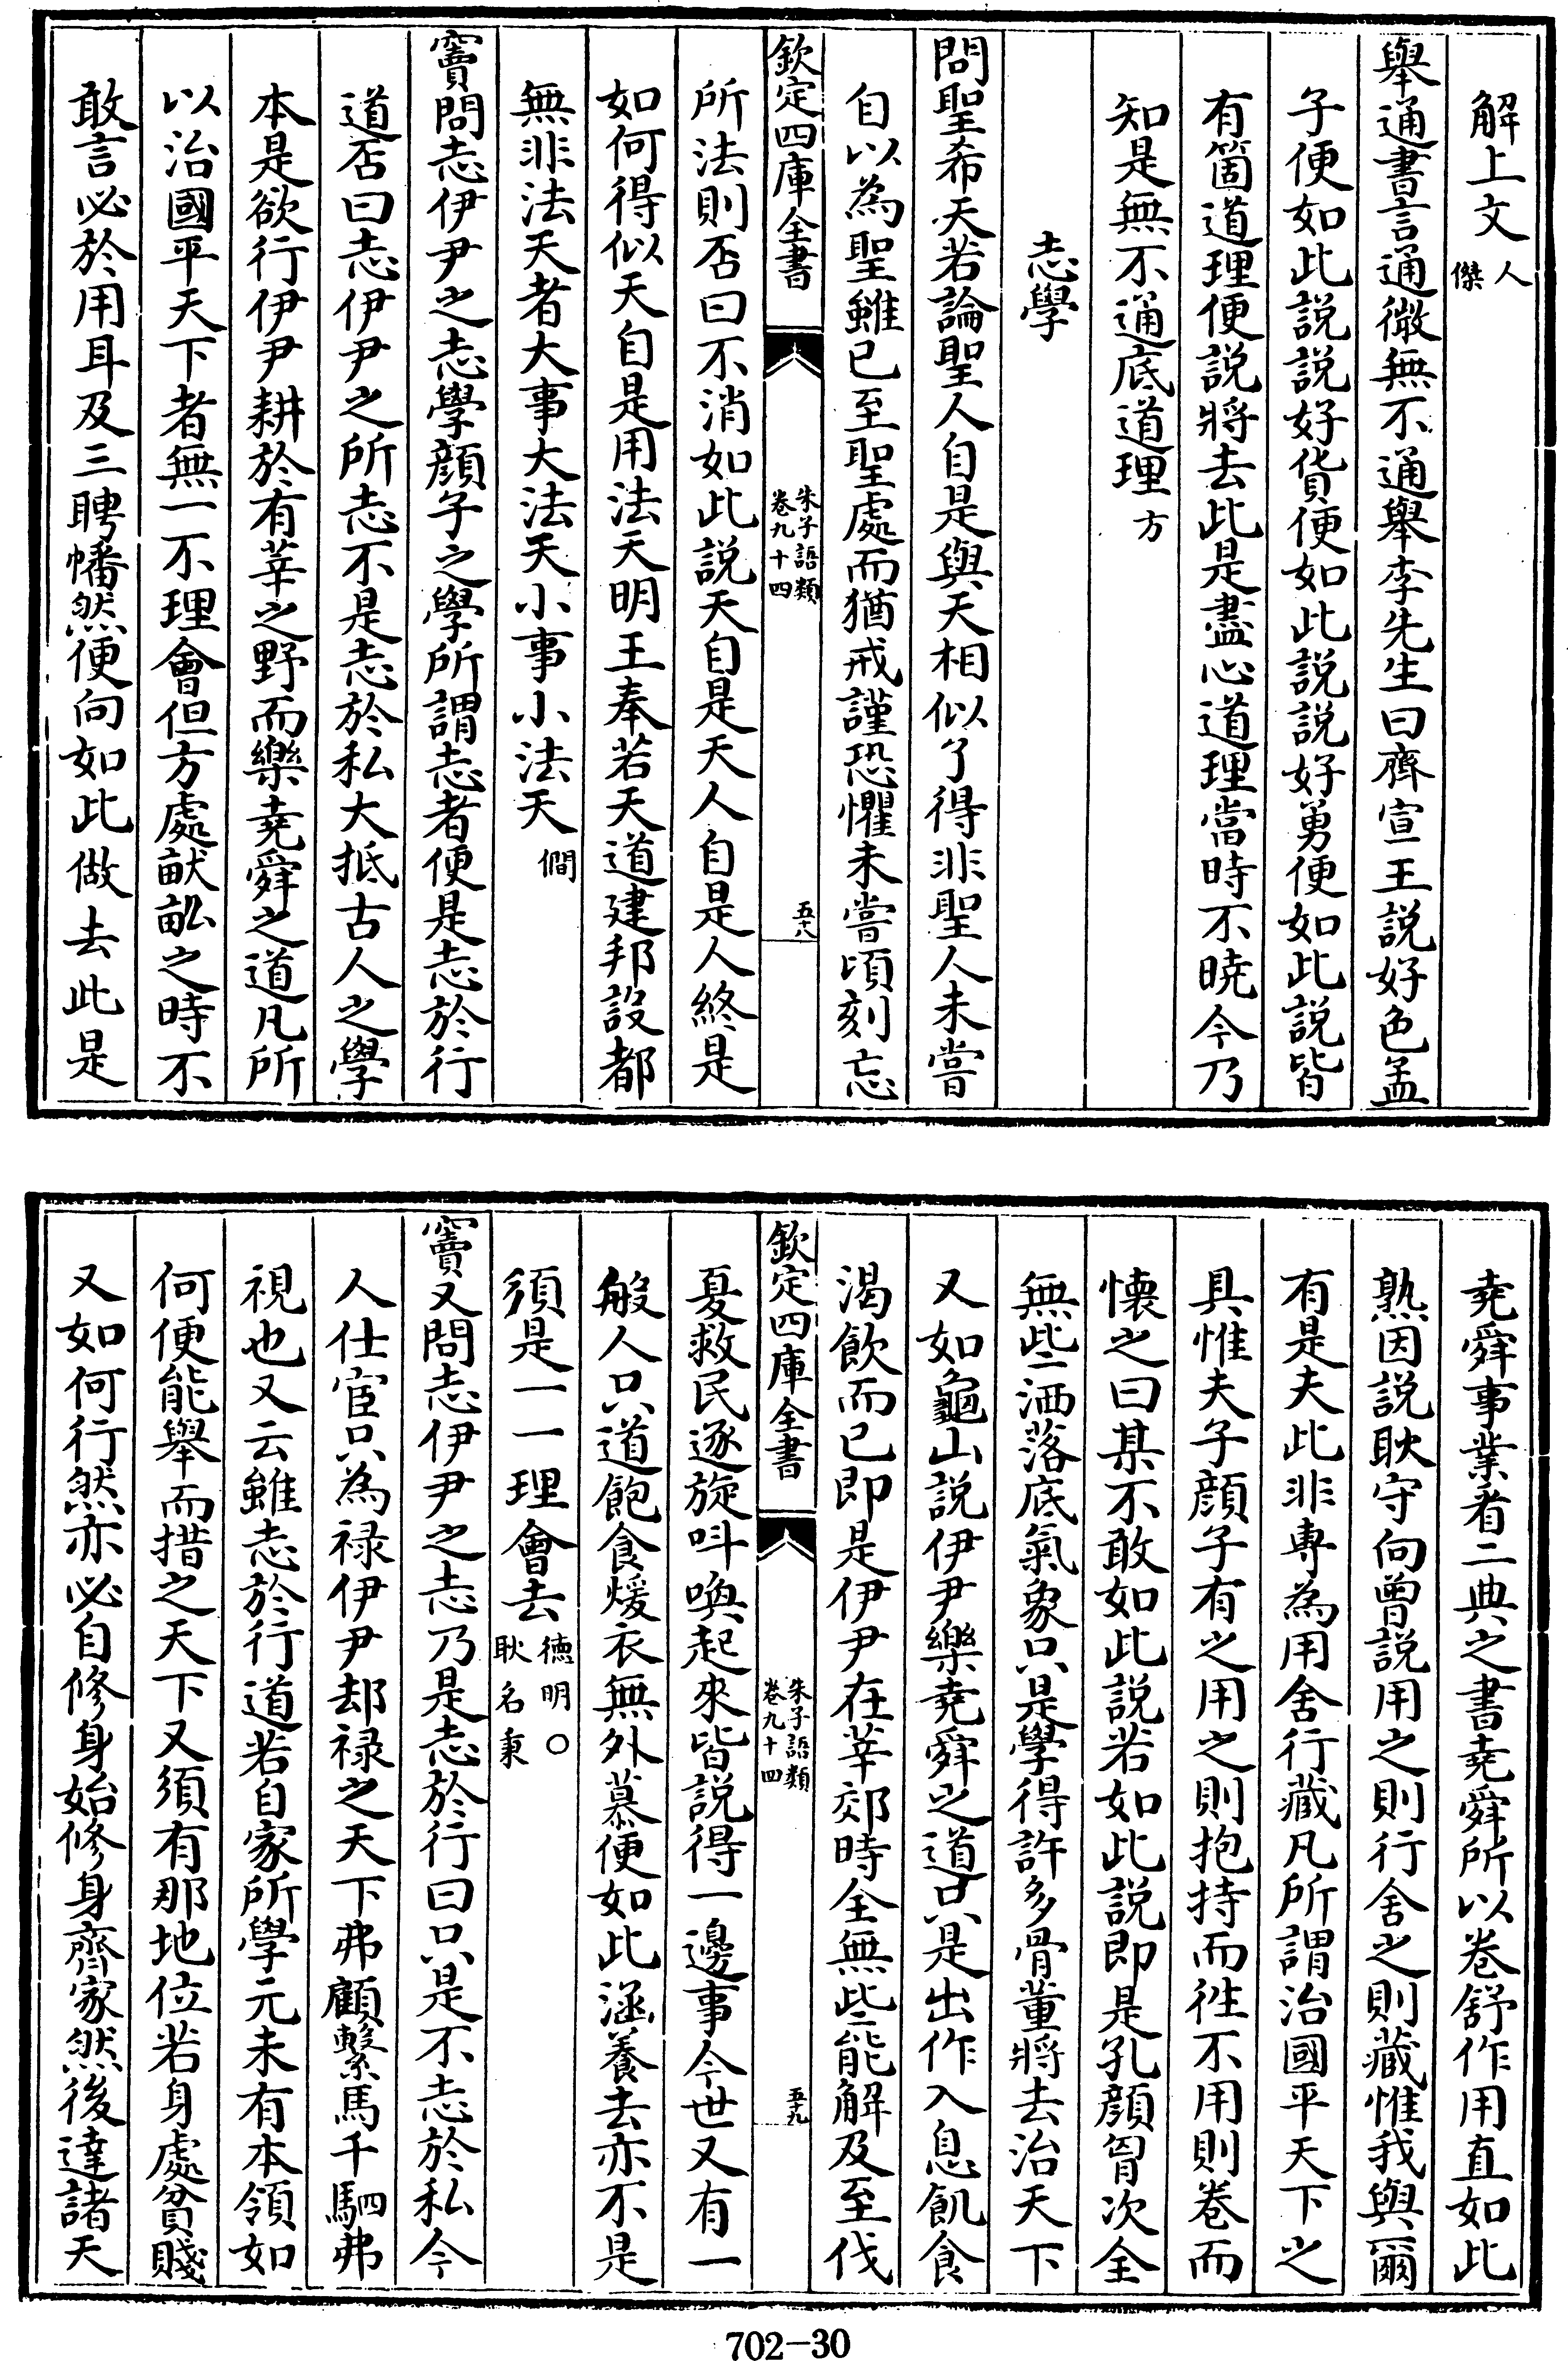 解上文人傑
舉通書言通微無不通舉李先生曰齊宣王説好色孟
子便如此説説好貨便如此説説好勇便如此説皆
有箇道理便説將去此是盡心道理當時不曉今乃
知是無不通底道理方
志學
問聖希天若論聖人自是與天相似了得非聖人未嘗
自以為聖雖已至聖處而猶戒謹恐懼未嘗頃刻忘
欽定四庫全書
朱子語類
卷九十四
五十八
所法則否曰不消如此説天自是天人自是人終是
如何得似天自是用法天明王奉若天道建邦設都
無非法天者大事大法天小事小法天僩
竇問志伊尹之志學顔子之學所謂志者便是志於行
道否曰志伊尹之所志不是志於私大抵古人之學
本是欲行伊尹耕於有莘之野而樂堯舜之道凡所
以治國平天下者無一不理會但方處畎畝之時不
敢言必於用耳及三聘幡然便向如此做去此是
堯舜事業看二典之書堯舜所以卷舒作用直如此
熟因説耿守向曽説用之則行舍之則藏惟我與爾
有是夫此非專為用舍行藏凡所謂治國平天下之
具惟夫子顔子有之用之則抱持而徃不用則卷而
懐之曰某不敢如此説若如此説即是孔顔胷次全
無些洒落底氣象只是學得許多骨董將去治天下
又如龜山説伊尹樂堯舜之道只是出作入息飢食
渴飲而已即是伊尹在莘郊時全無些能解及至伐
欽定四庫全書
朱子語類
卷九十四
五十九
夏救民逐旋呌喚起來皆説得一邊事今世又有一
般人只道飽食煖衣無外慕便如此涵養去亦不是
須是一一理會去徳明○耿名秉
竇又問志伊尹之志乃是志於行曰只是不志於私今
人仕宦只為禄伊尹却禄之天下弗顧繫馬千駟弗
視也又云雖志於行道若自家所學元未有本領如
何便能舉而措之天下又須有那地位若身處貧賤
又如何行然亦必自修身始修身齊家然後達諸天
702-30